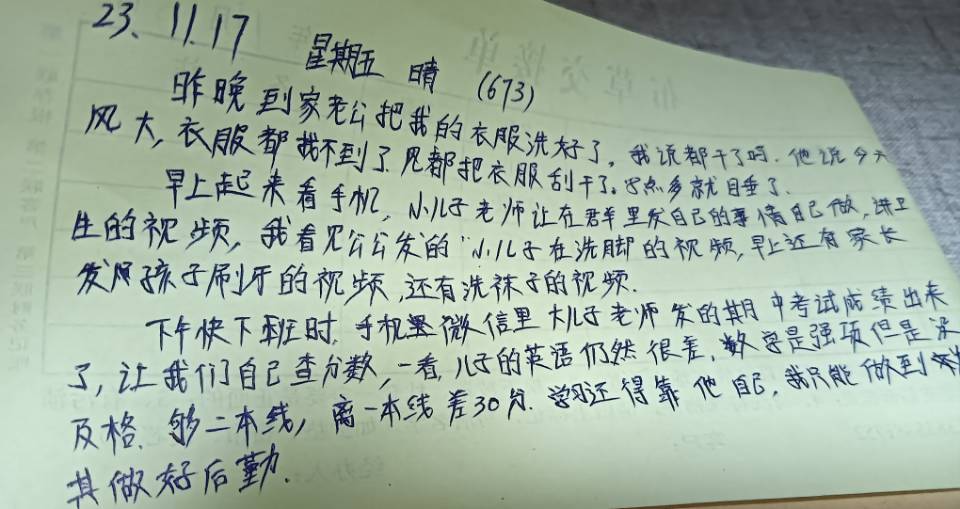 23、11.17 星期五 晴 (673)
昨晚到家老公把我的衣服洗好了，我说都干了吗.他说今天
风大，衣服都找不到了.风都把衣服刮干了。点多就睡了.
早上起来看手机，小儿子老师让在群里发自己的事情自己做，讲卫
生的视频，我看见公公发的小儿子在洗脚的视频，早上还有家长
发孩子刷牙的视频，还有洗袜子的视频.
下午快下班时，手机微信里大儿子老师发的期中考试成绩出来
了，让我们自己查分数，一看，儿子的英语仍然很差，数学是强项但是没
及格、够二本线，离一本线差30分.学习还得靠他自己，我只能做到
其做好后勤.